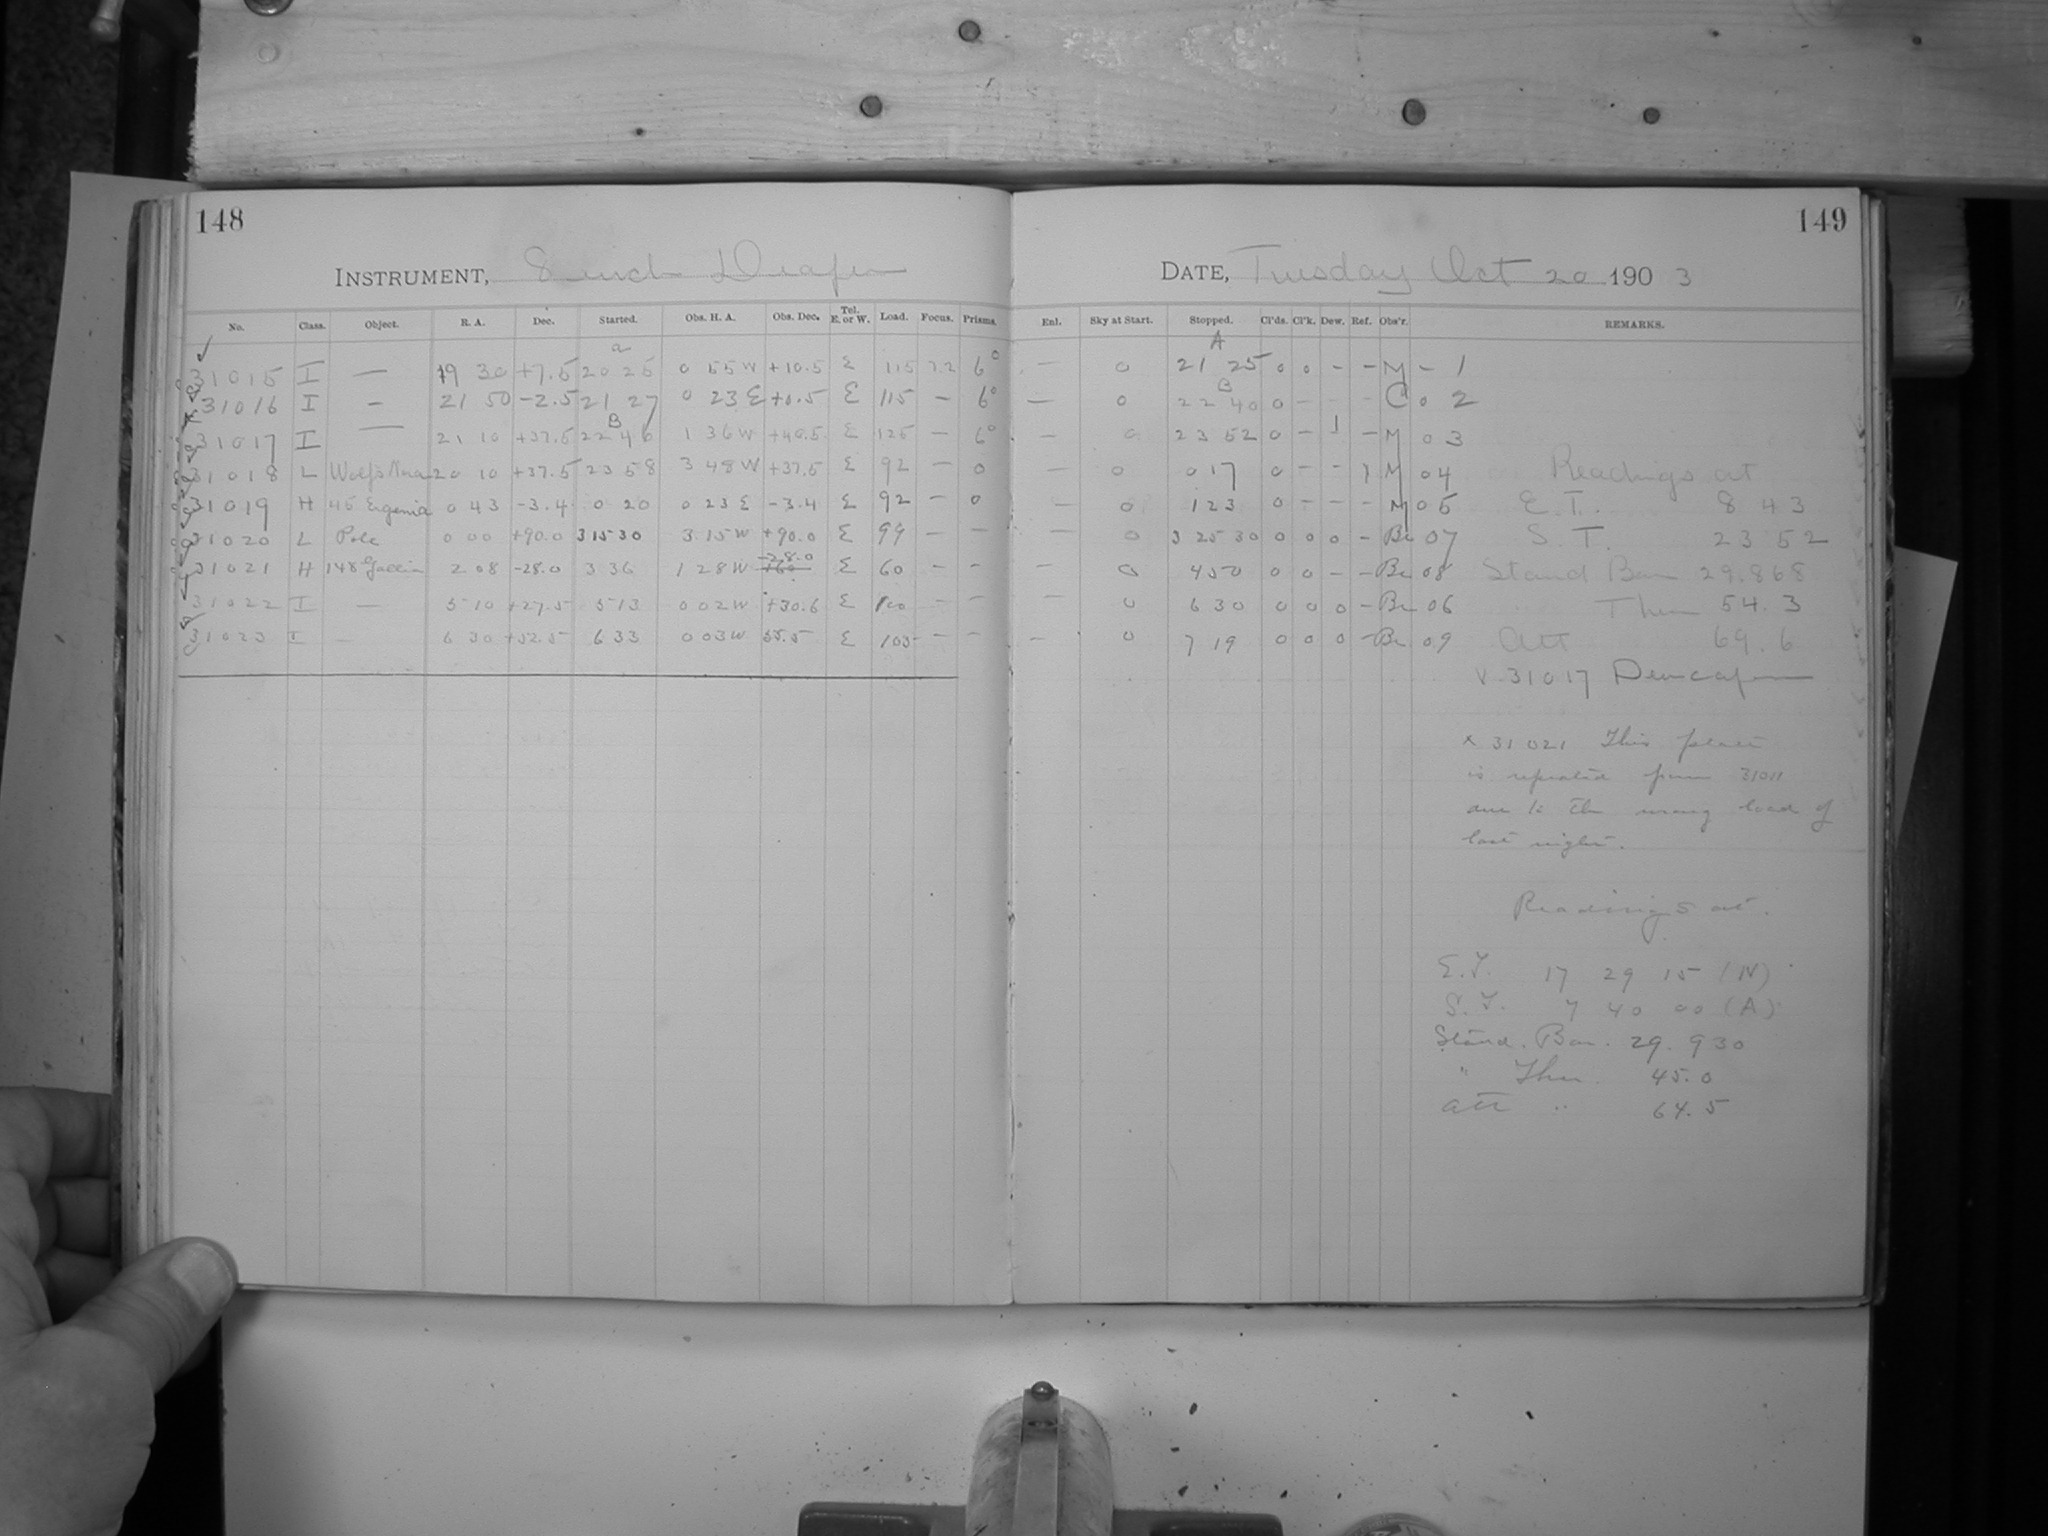 148
INSTRUMENT, 8 inch Draper
No. Class. Object. R. A. Dec. Started. Obs. H. A. Obs. Dec. Tel. E. or W. Load. Focus. Prisms.
a
31015 I — 19 30 +7.5 20 25 0 55 W +10.5 E 115 7.2 6°
31016 I — 21 50 -2.5 21 27 0 23 E +0.5 E 115 — 6°
B
31017 I — 21 10 +37.5 22 46 1 36 W +40.5 E 125 — 6°
31018 L Wolf's Nova 20 10 +37.5 23 58 3 48 W +37.5 E 92 — 0
31019 H 45 Eugenia 0 43 -3.4 0 20 0 23 E -3.4 E 92 — 0
31020 L Pole 0 00 +90.0 3 15 30 3 15 W +90.0 E 99 — —
31021 H 148 Gallia 2 08 -28.0 3 36 1 28 W -28.0 E 60 — —
31022 I — 5 10 +27.5 5 13 0 02 W +30.6 E 100 — —
31023 I — 6 30 +52.5 6 33 0 03 W 55.5 E 105 — —
149
DATE, Tuesday Oct 20 1903
Enl. Sky at Start. Stopped. Cl'ds. Cl'k. Dew. Ref. Obs'r. REMARKS.
A
— 0 21 25 0 0 - - M - 1
B
— 0 22 40 0 - - - C 0 2
— 0 23 52 0 - 1 - M 0 3
— 0 0 17 0 - - 1 M 04 Readings at
— 0 1 23 0 - - - M 05 E. T. 8 43
— 0 3 25 30 0 0 0 - Br 07 S. T. 23 52
— 0 4 50 0 0 - - Br 08 Stand Bar 29.868
— 0 6 30 0 0 0 - Br 06 Ther 54.3
— 0 7 19 0 0 0 - Br 09 Att 69.6
v. 31017 Dew cap
x 31021 This plate
is repeated from 31011
due to the wrong load of
last night.
Readings at.
E.T. 17 29 15 (N)
S.T. 7 40 00 (A)
Stand. Bar. 29.930
" Ther. 45.0
Att " 64.5